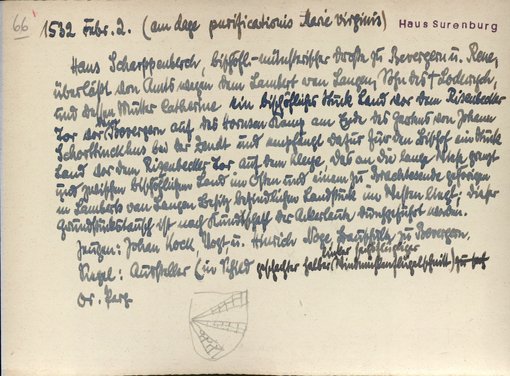 66 1532 Febr. 2. (am dage purificationis Marie virginis) Haus Surenburg
Hans Scharppenberch, bischöfl.-münsterischer Droste zu Bevergern u. Rene,
überläßt von Amts wegen dem Lambert van Langen, Sohn des † Lodewich,
und dessen Mutter Catherine ein bischöfliches Stück Land vor dem Risenbecker
Tor vor Bevergern auf des Hornsen Kamp am Ende des Gartens von Johann
bei der Landt und empfängt dafür für den Bischof ein Stück
Land vor dem Risenbecker Tor auf dem Kleye, das an die lange Wiese grenzt
und zwischen bischöflichem Land im Osten und einem zu gehörigen
in Lamberts van Langen Besitz befindlichen Landstück im Westen liegt; dieser
Grundstückstausch ist nach Kundschaft der Ackerleute durchgeführt worden.
Zeugen: Johan Kock Vogt u. Hinrich zu Bevergern.
Siegel: Aussteller (im Schild halber Windmühlenflügelschnitt)
Or. Perg.